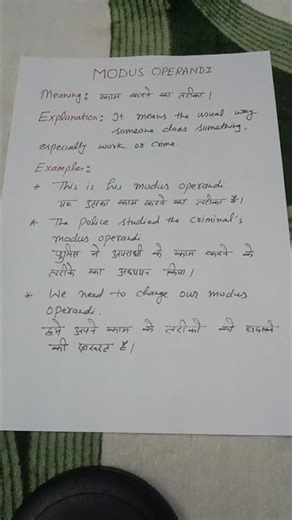 MODUS OPERANDI
Meaning: काम करने का तरीका।
Explanation: It means the usual way
someone does something,
especially work or crime.
Examples:
* This is his modus operandi.
यह उसका काम करने का तरीका है।
* The police studied the criminal's
modus operandi.
पुलिस ने अपराधी के काम करने के
तरीके का अध्ययन किया।
* We need to change our modus
operandi.
हमें अपने काम के तरीको को बदलने
की ज़रूरत है।